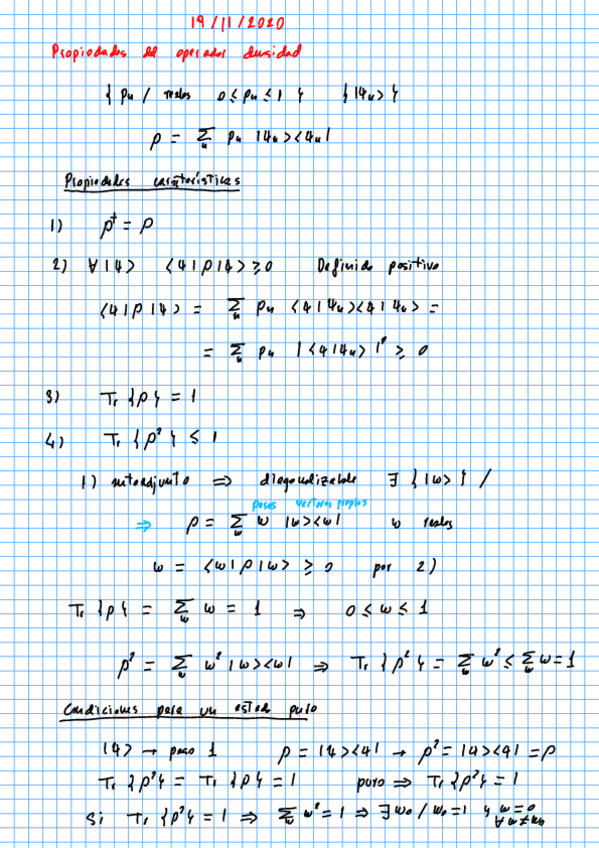 19/11/2020
Propiedades del operador densidad
{ pₙ / reales 0 ≤ pₙ ≤ 1 } { |ψₙ> }
ρ = Σₙ pₙ |ψₙ><ψₙ|
Propiedades características
1) ρ† = ρ
2) ∀ |ψ> <ψ|ρ|ψ> ≥ 0 Definido positivo
<ψ|ρ|ψ> = Σₙ pₙ <ψ|ψₙ><ψ|ψₙ> =
= Σₙ pₙ |<ψ|ψₙ>|² ≥ 0
3) Tr {ρ} = 1
4) Tr {ρ²} ≤ 1
1) autoadjunto ⇒ diagonalizable ∃ {|w>} /
pesos vectores propios
⇒ ρ = Σ_w w |w><w| w reales
w = <w|ρ|w> ≥ 0 por 2)
Tr {ρ} = Σ_w w = 1 ⇒ 0 ≤ w ≤ 1
ρ² = Σ_w w² |w><w| ⇒ Tr {ρ²} = Σ_w w² ≤ Σ_w w = 1
Condiciones para un estado puro
|ψ> → peso 1 ρ = |ψ><ψ| → ρ² = |ψ><ψ| = ρ
Tr {ρ²} = Tr {ρ} = 1 puro ⇒ Tr {ρ²} = 1
Si Tr {ρ²} = 1 ⇒ Σ_w w² = 1 ⇒ ∃ w₀ / w₀ = 1 y w = 0
∀ w ≠ w₀